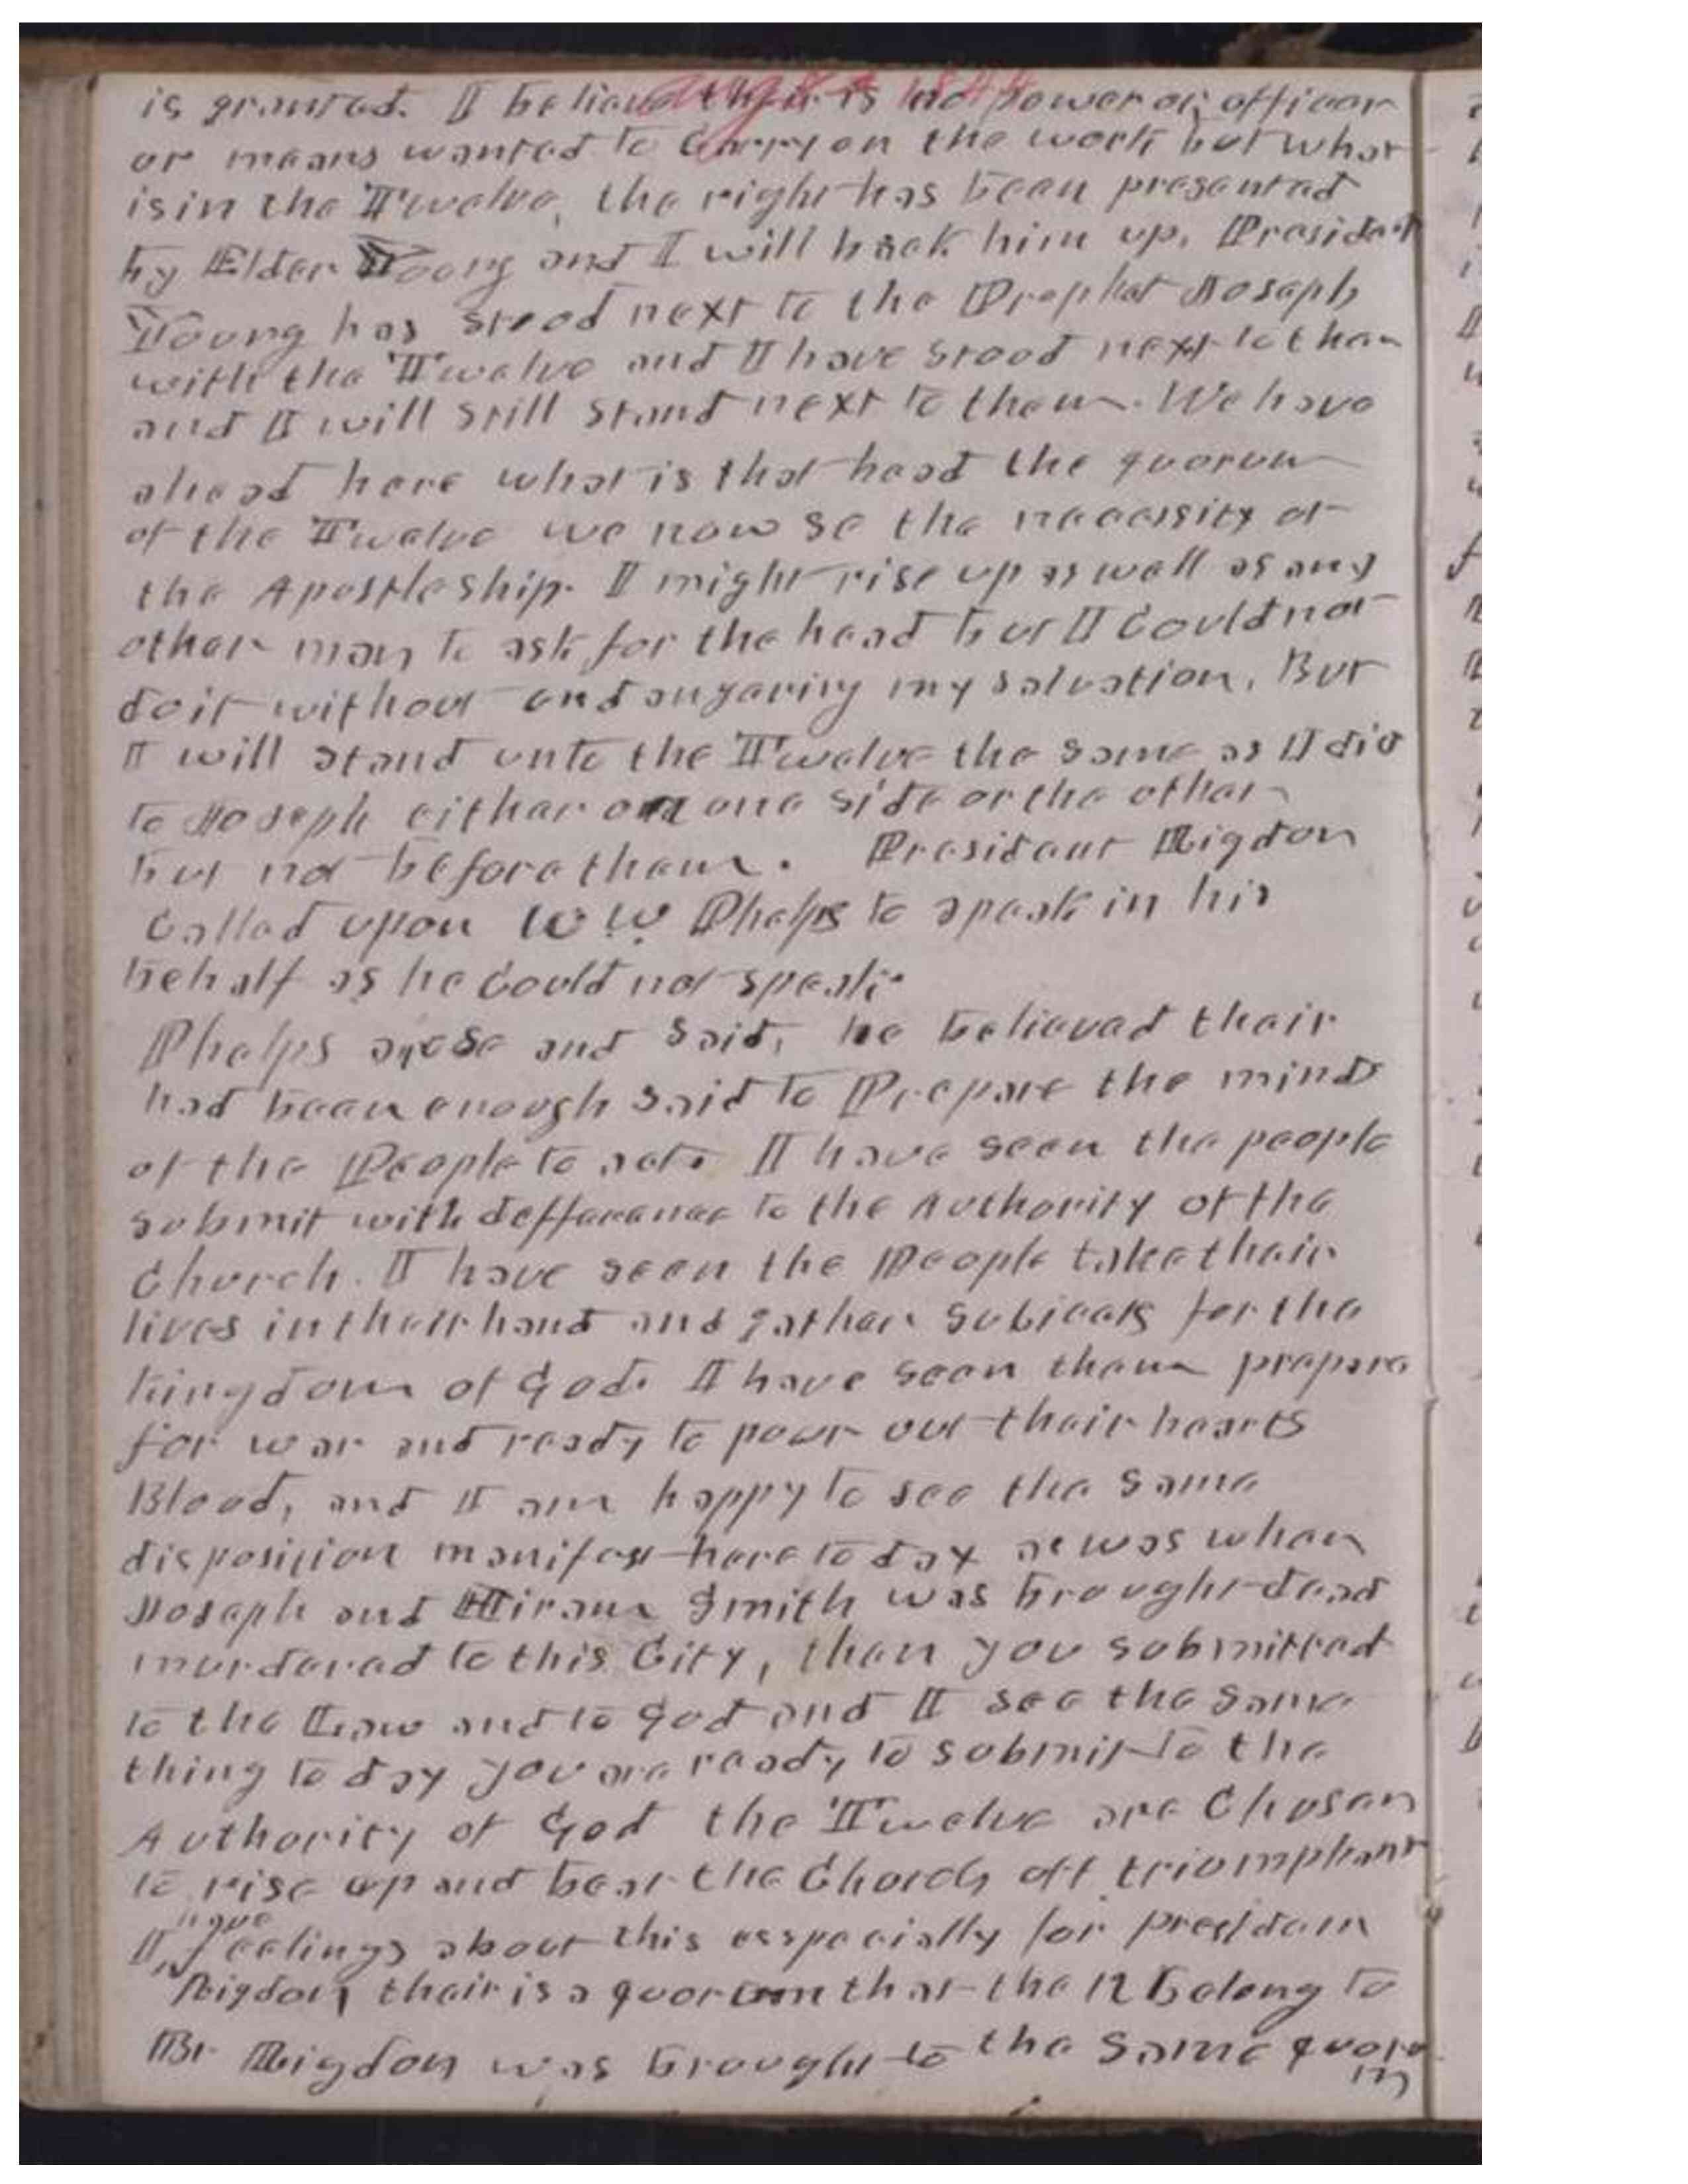 Aug 8th 1844
is granted. I believe thair is no power or officer
or means wanted to Carry on the work but what
is in the Twelve, the right has been presented
by Elder Young and I will back him up, President
Young has stood next to the Prophet Joseph
with the Twelve and I have stood next to them
and I will still stand next to them. We have
ahead here what is that head the quorum
of the Twelve we now se the necessity of
the Apostleship. I might rise up as well as any
other man to ask for the head but I Could not
do it without endangering my salvation. But
I will stand unto the Twelve the same as I did
to Joseph either on one side or the other
but not before them. President Rigdon
Called upon W. W. Phelps to speak in his
behalf as he Could not speak.
Phelps arose and said, he believed thair
had been enough said to Prepare the minds
of the People to act. I have seen the people
submit with defference to the Authority of the
Church. I have seen the People take thair
lives in their hand and gather subjects for the
kingdom of God. I have seen them prepare
for war and ready to pour out thair hearts
Blood, and I am happy to see the same
disposition manifest here to day as was when
Joseph and Hiram Smith was brought dead
murdered to this City, then you submitted
to the Law and to God and I see the same
thing to day you are ready to submit to the
Authority of God the Twelve are Chosen
to rise up and bear the Church off triumphant
I have feelings about this esspecially for president
Rigdon, thair is a quorum that the 12 belong to
Br Rigdon was brought to the same quorum